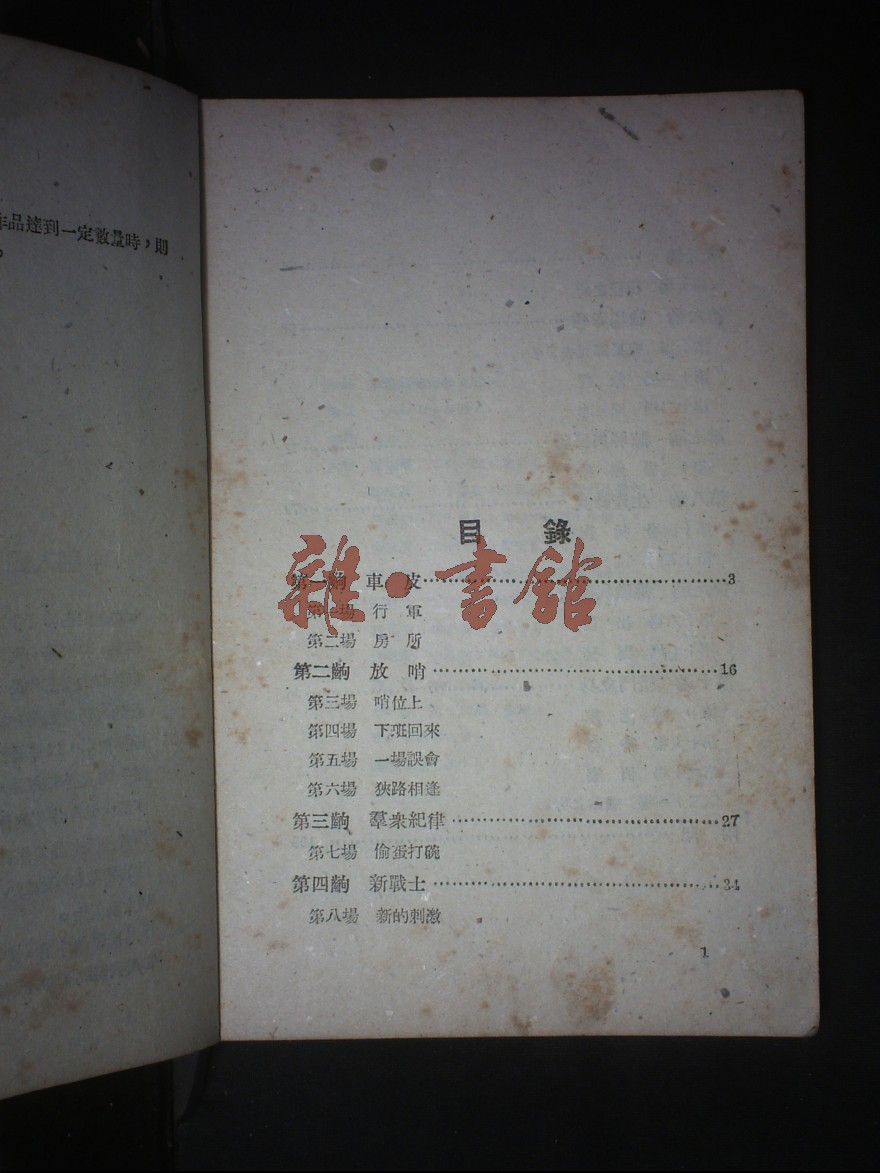 作品達到一定數量時，則
。
目錄
第一齣 車皮 3
第一場 行軍
第二場 房所
第二齣 放哨 16
第三場 哨位上
第四場 下班回來
第五場 一場誤會
第六場 狹路相逢
第三齣 羣衆紀律 27
第七場 偷蛋打碗
第四齣 新戰士 34
第八場 新的刺激
1
雜·書館